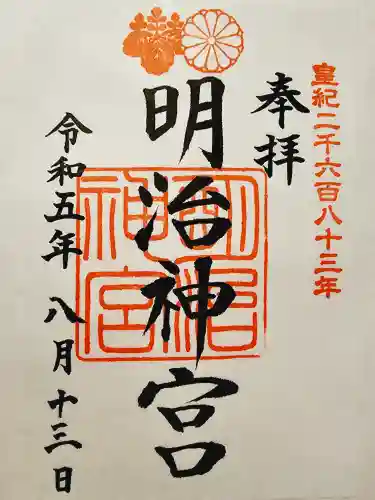 皇紀二千六百八十三年
奉拝
明治神宮
明治神宮
令和五年 八月十三日